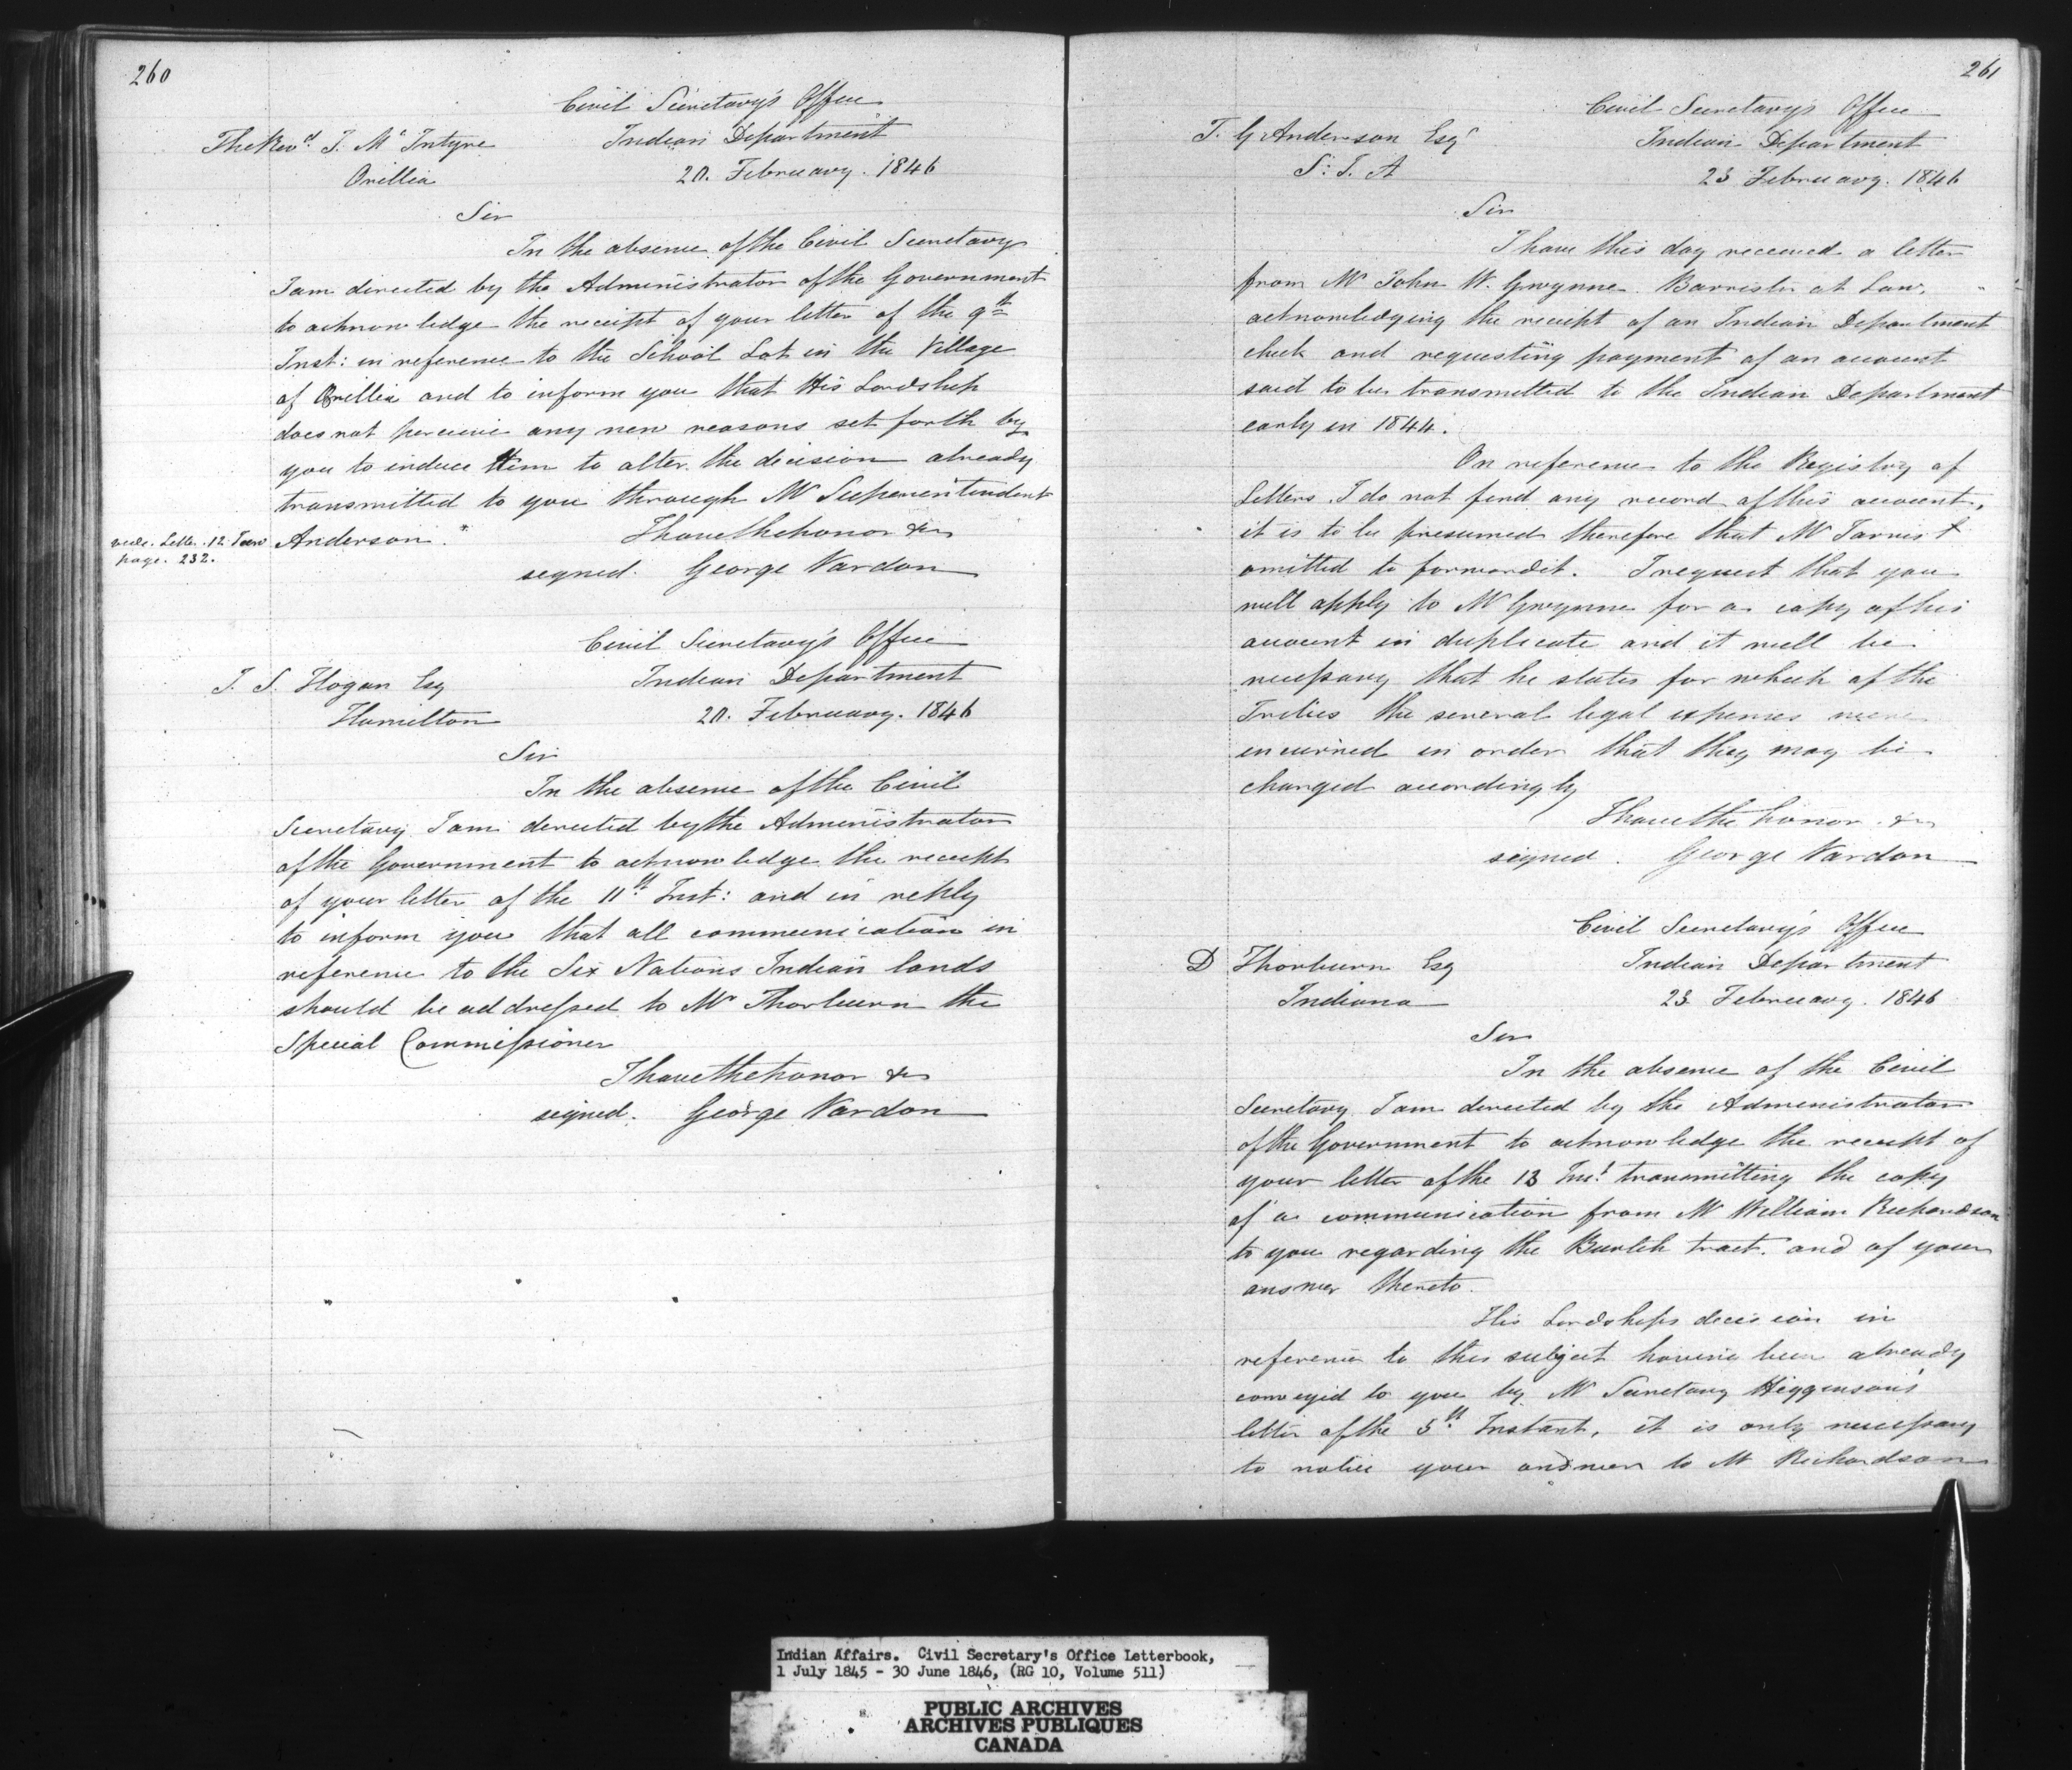 260
Civil Secretary's Office
The Revd. J. McIntyre Indian Department
Orillia 20. February. 1846
Sir
In the absence of the Civil Secretary
I am directed by the Administrator of the Government
to acknowledge the receipt of your letter of the 9th
Inst: in reference to the School Lot in the Village
of Orillia and to inform you that His Lordship
does not perceive any new reasons set forth by
you to induce Him to alter the decision already
transmitted to you through Mr Superintendent
vide. Letter. 12 Jan Anderson. I have the honor &c
page. 232.
signed. George Vardon
Civil Secretary's Office
J. S. Hogan Esq Indian Department
Hamilton 20. February. 1846
Sir
In the absence of the Civil
Secretary I am directed by the Administrator
of the Government to acknowledge the receipt
of your letter of the 11th Inst: and in reply
to inform you that all communication in
reference to the Six Nations Indian lands
should be addressed to Mr Thorburn the
Special Commissioner
I have the honor &c
signed. George Vardon
261
Civil Secretary's Office
T. G Anderson Esqr Indian Department
S: I. A 23 February. 1846
Sir
I have this day received a letter
from Mr John W. Gwynne Barrister at Law,
acknowledging the receipt of an Indian Department
check and requesting payment of an account
said to be transmitted to the Indian Department
early in 1844.
On reference to the Registry of
Letters I do not find any record of this account,
it is to be presumed therefore that Mr Jarvis
omitted to forward it. I request that you
will apply to Mr Gwynne for a copy of his
account in duplicate and it will be
necessary that he states for which of the
Tribes the several legal expenses were
incurred in order that they may be
charged accordingly
I have the honor &c
signed. George Vardon
Civil Secretary's Office
D Thorburn Esq Indian Department
Indiana 23 February. 1846
Sir
In the absence of the Civil
Secretary I am directed by the Administrator
of the Government to acknowledge the receipt of
your letter of the 13 Inst transmitting the copy
of a communication from Mr William Richardson
to you regarding the Burtch tract. and of your
answer thereto.
His Lordships decision in
reference to this subject having been already
conveyed to you by Mr Secretary Higginson's
letter of the 5th Instant, it is only necessary
to notice your answer to Mr Richardson
Indian Affairs. Civil Secretary's Office Letterbook,
1 July 1845 - 30 June 1846, (RG 10, Volume 511)
PUBLIC ARCHIVES
ARCHIVES PUBLIQUES
CANADA